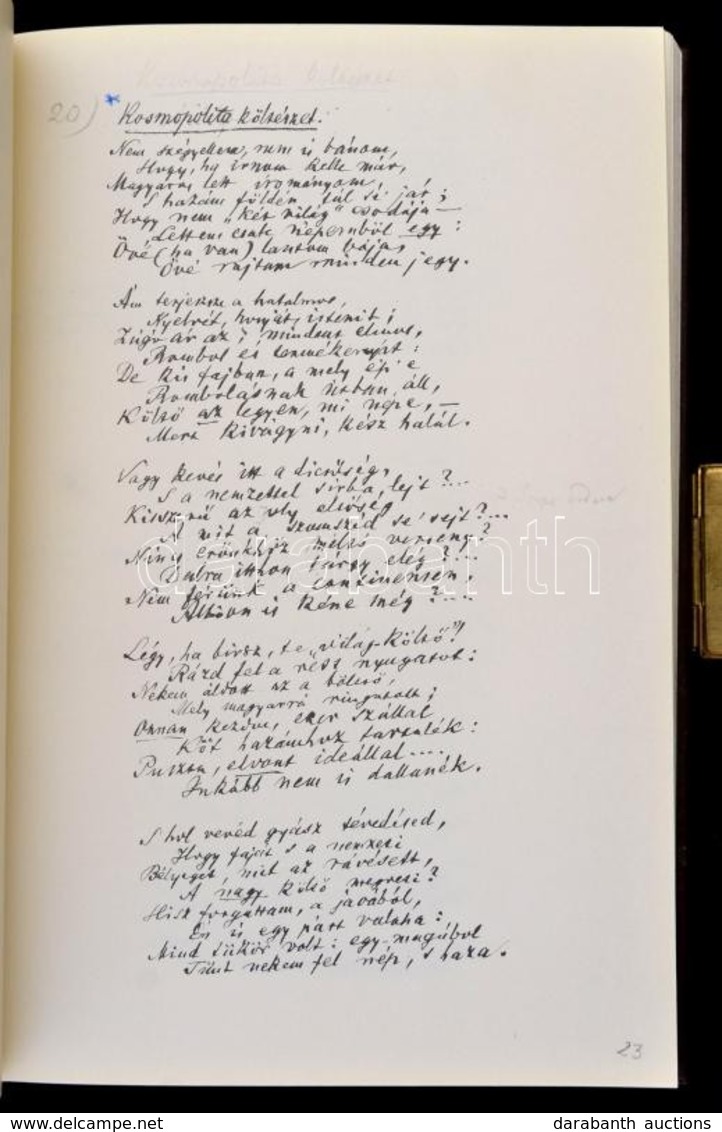 Kosmopolita költészet
20)
*
Kosmopolita költészet.
Nem szégyellem, nem is bánom,
Hogy, ha irnom kelle már,
Magyaros lett irományom,
S hazám földén túl se jár;
Hogy nem „két világ" csodája —
Lettem csak népemből egy:
Övé (ha van) lantom bája,
Övé rajtam minden jegy.
Ám terjessze a hatalmas,
Nyelvét, honját, istenit;
Zúgó ár az, mindent elmos,
Rombol és termékenyít:
De kis fajban, a mely ép e
Rombolásnak útban áll,
Költő az legyen, mi népe, —
Mert kivágyni, kész halál.
Vagy kevés itt a dicsőség,
S a nemzettel sírba lejt?...
Kisszerű az oly elsőség
A mit a szomszéd se sejt?...
Nincs erőnkhöz méltó verseny?
Dalra itthon tárgy elég?...
Nem férünk a continensen,
Albion is kéne még?...
Légy, ha birsz, te „világ-költő"!
Rázd fel a rest nyugatot:
Nekem áldott az a bölcső,
Mely magyarrá ringatott;
Onnan kezdve, ezer szállal
Köt hazámhoz tartalék:
Puszta, elvont ideállal....
Inkább nem is dallanék.
S hol vevéd gyász tévedésed,
Hogy faját s a nemzeti
Bélyeget, mit az rávésett,
A nagy költő megveti?
Hisz forgattam, a javából,
Én is egy párt valaha:
Mind tükör volt: egy-magából
Tünt nekem fel nép, s haza.
darabanth
23
www.hungaricana.com
darabanth auctions